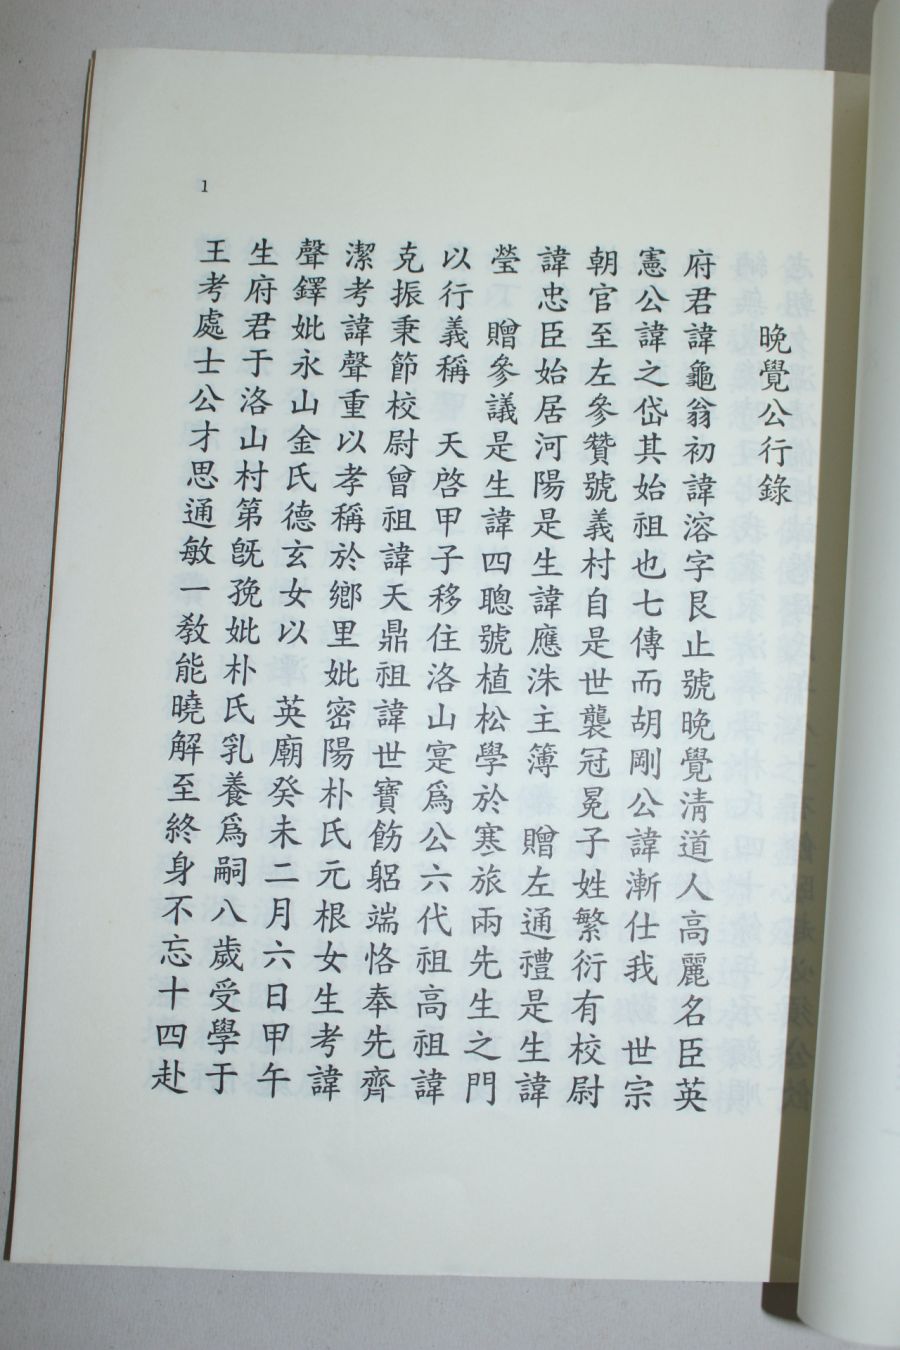 晩覺公行錄
府君諱龜翁初諱溶字艮止號晩覺淸道人高麗名臣英
憲公諱之岱其始祖也七傳而胡剛公諱漸仕我　世宗
朝官至左參贊號義村自是世襲冠冕子姓繁衍有校尉
諱忠臣始居河陽是生諱應洙主簿　贈左通禮是生諱
瑩　贈參議是生諱四聰號植松學於寒旅兩先生之門
以行義稱　天啓甲子移住洛山寔爲公六代祖高祖諱
克振秉節校尉曾祖諱天鼎祖諱世寶飭躬端恪奉先齊
潔考諱聲重以孝稱於鄕里妣密陽朴氏元根女生考諱
聲鐸妣永山金氏德玄女以　英廟癸未二月六日甲午
生府君于洛山村第旣㝃妣朴氏乳養爲嗣八歲受學于
王考處士公才思通敏一敎能曉解至終身不忘十四赴
1